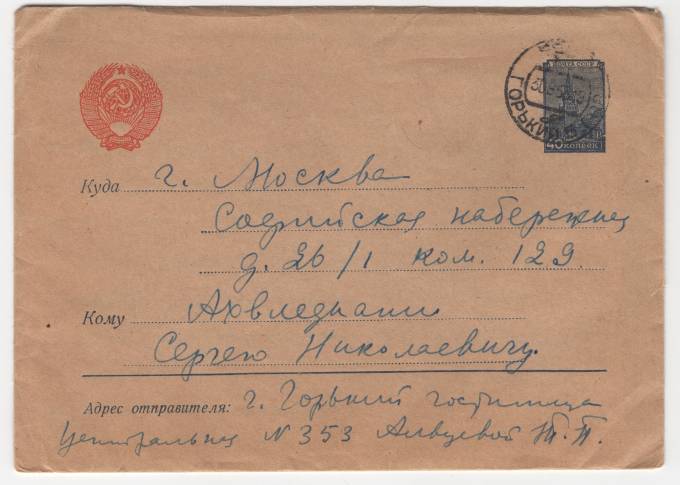 ПОЧТА СССР
ГОРЬКИЙ
40 КОПЕЕК
Куда г. Москва
Софийская набережная
д. 26/1 ком. 129
Кому Ахвледиани
Сергею Николаевичу
Адрес отправителя: г. Горький гостиница
Центральная N 353